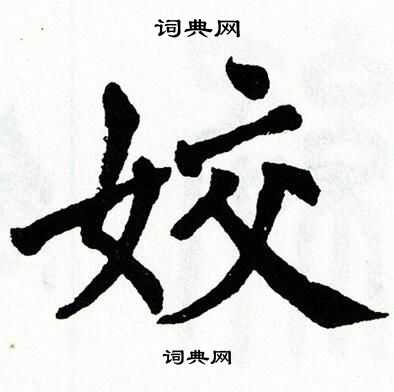 词典网
姣
词典网